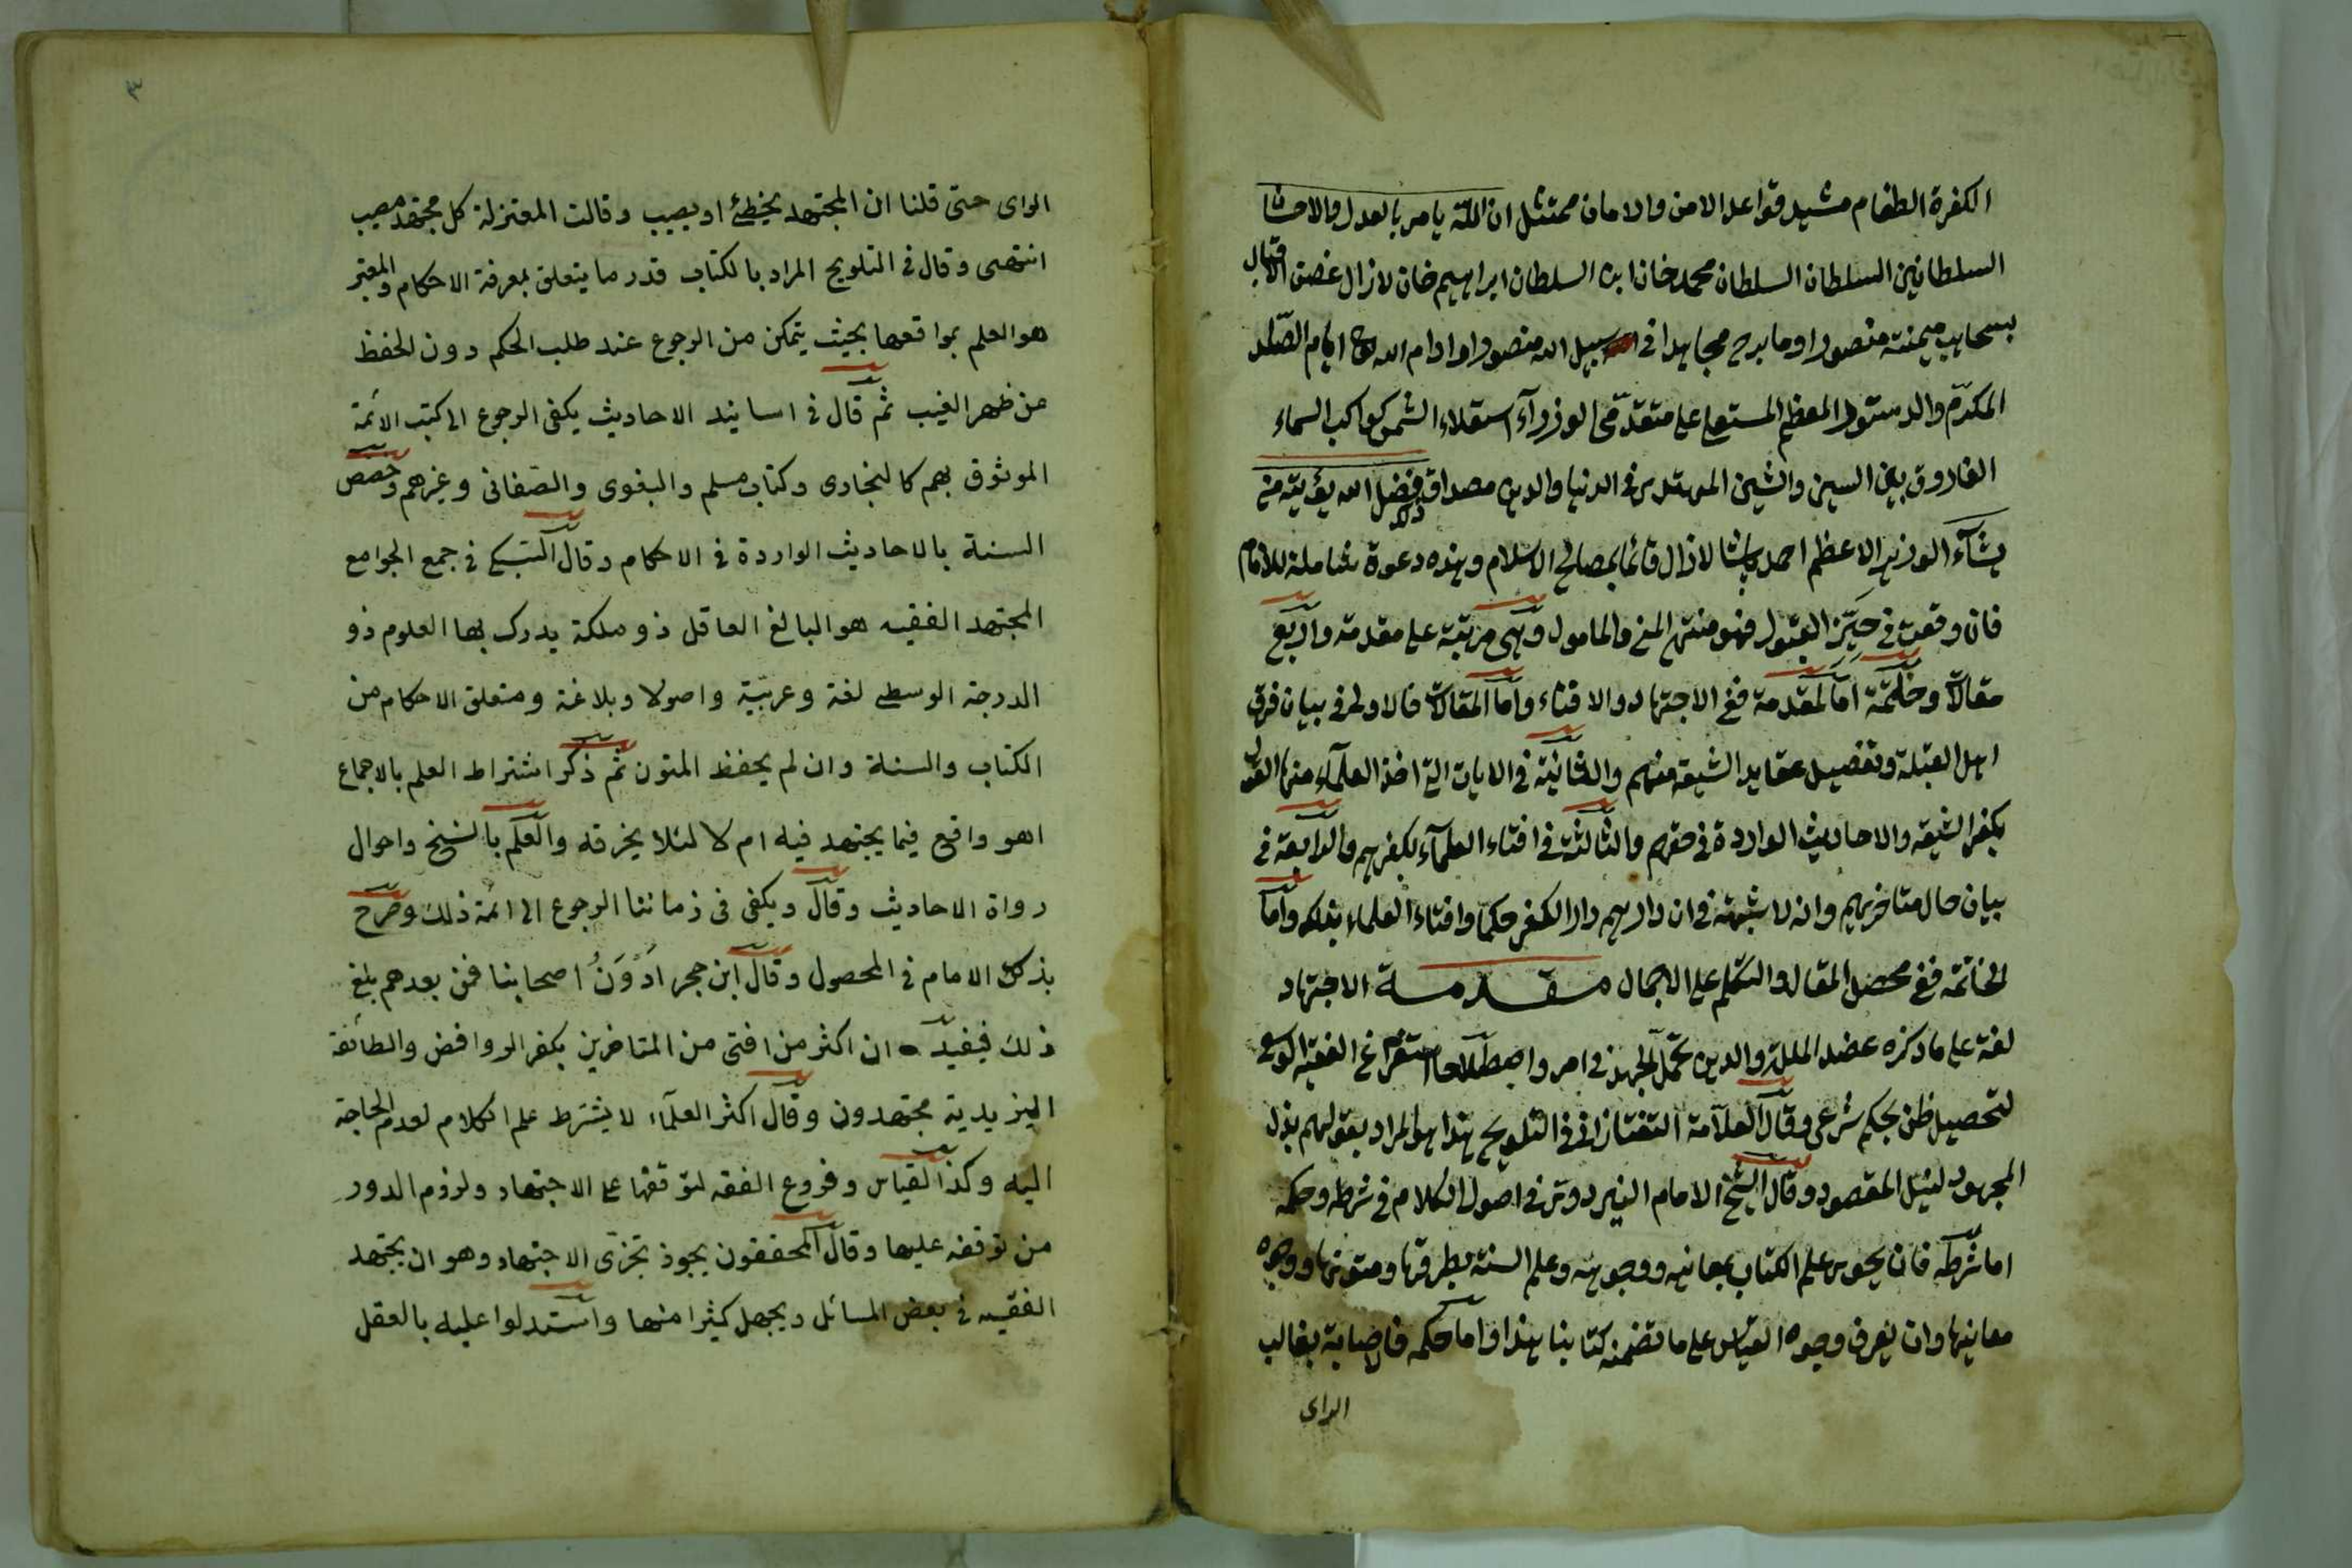 الكفرة الطغام مشيد قواعد الامن والامان ممتثل ان الله يامر بالعدل والاحسان
السلطان بن السلطان السلطان محمد خان ابن السلطان ابراهيم خان لازال غصن الاقبال
بسحايب ميمنته منضورا وما برح مجاهدا في سبيل الله منصورا وادام الله ايام الصدر
المكرم والدستور المعظم المستعلي على متقدمي الوزرآء استعلاء الشمس كواكب السماء
الفاروق بين السين والشين المهتدى في الدنيا والدين مصداق ذلك فضل الله يؤتيه من
يشآء الوزير الاعظم احمد پاشا لازال قائما بمصالح الاسلام وهذه دعوة شاملة للانام
فان وقعت في حيّز القبول فهو منتهى المنى والمامول وهى مرتبة على مقدمة واربع
مقالات وخاتمة اما المقدمة ففى الاجتهاد والافتاء واما المقالات فالاولى في بيان فرق
اهل القبلة وتفصيل عقايد الشيعة منهم والثانية في الايات التى اخذ العلمآء منها القول
بكفر الشيعة والاحاديث الواردة في حقهم والثالثة في افتاء العلمآء بكفرهم والرابعة في
بيان حال متاخريهم وانه لا شبهة في ان دارهم دار الكفر حكما وافتاء العلماء بذلك واما
الخاتمة ففى محصل المقال والتكلم على الاجمال مقدمة الاجتهاد
لغة على ما ذكره عضد الملة والدين تحمل الجهد في امر واصطلاحا استفراغ الفقيه الوسع
لتحصيل ظن بحكم شرعى وقال العلآمة التفتازانى في التلويح هذا هو المراد بقولهم بذل
المجهود لنيل المقصود وقال الشيخ الامام البزدوى في اصول الكلام في شرطه وحكمه
اما شرطه فان يحوى علم الكتاب بمعانيه ووجوهه وعلم السنة بطرقها ومتونها ووجوه
معانيها وان يعرف وجوه القياس على ما تضمنه كتابنا هذا واما حكمه فالاصابة بغالب
الراى
٣
الراى حتى قلنا ان المجتهد يخطئ او يصيب وقالت المعتزلة كل مجتهد مصيب
انتهى وقال في التلويح المراد بالكتاب قدر ما يتعلق بمعرفة الاحكام والمعتبر
هو العلم بمواقعها بحيث يتمكن من الرجوع عند طلب الحكم دون الحفظ
عن ظهر الغيب ثم قال في اسانيد الاحاديث يكفى الرجوع الى كتب الائمة
الموثوق بهم كالبخارى وكتاب مسلم والبغوى والصغانى وغيرهم وخصص
السنة بالاحاديث الواردة في الاحكام وقال السبكى في جمع الجوامع
المجتهد الفقيه هو البالغ العاقل ذو ملكة يدرك بها العلوم ذو
الدرجة الوسطى لغة وعربية واصولا وبلاغة ومتعلق الاحكام من
الكتاب والسنة وان لم يحفظ المتون ثم ذكر اشتراط العلم بالاجماع
اهو واقع فيما يجتهد فيه ام لا لئلا يخرقه والعلم بالنسخ واحوال
رواة الاحاديث وقال ويكفى في زماننا الرجوع الى ائمة ذلك وصرح
بذلك الامام في المحصول وقال ابن حجر ادون اصحابنا فمن بعدهم بلغ
ذلك فيفيد ان اكثر من افتى من المتاخرين بكفر الروافض والطائفة
اليزيدية مجتهدون وقال اكثر العلمآء لا يشترط علم الكلام لعدم الحاجة
اليه وكذا القياس وفروع الفقه لتوقفها على الاجتهاد ولزوم الدور
من توقفه عليها وقال المحققون يجوز تجزى الاجتهاد وهو ان يجتهد
الفقيه في بعض المسائل ويجهل كثيرا منها واستدلوا عليه بالعقل